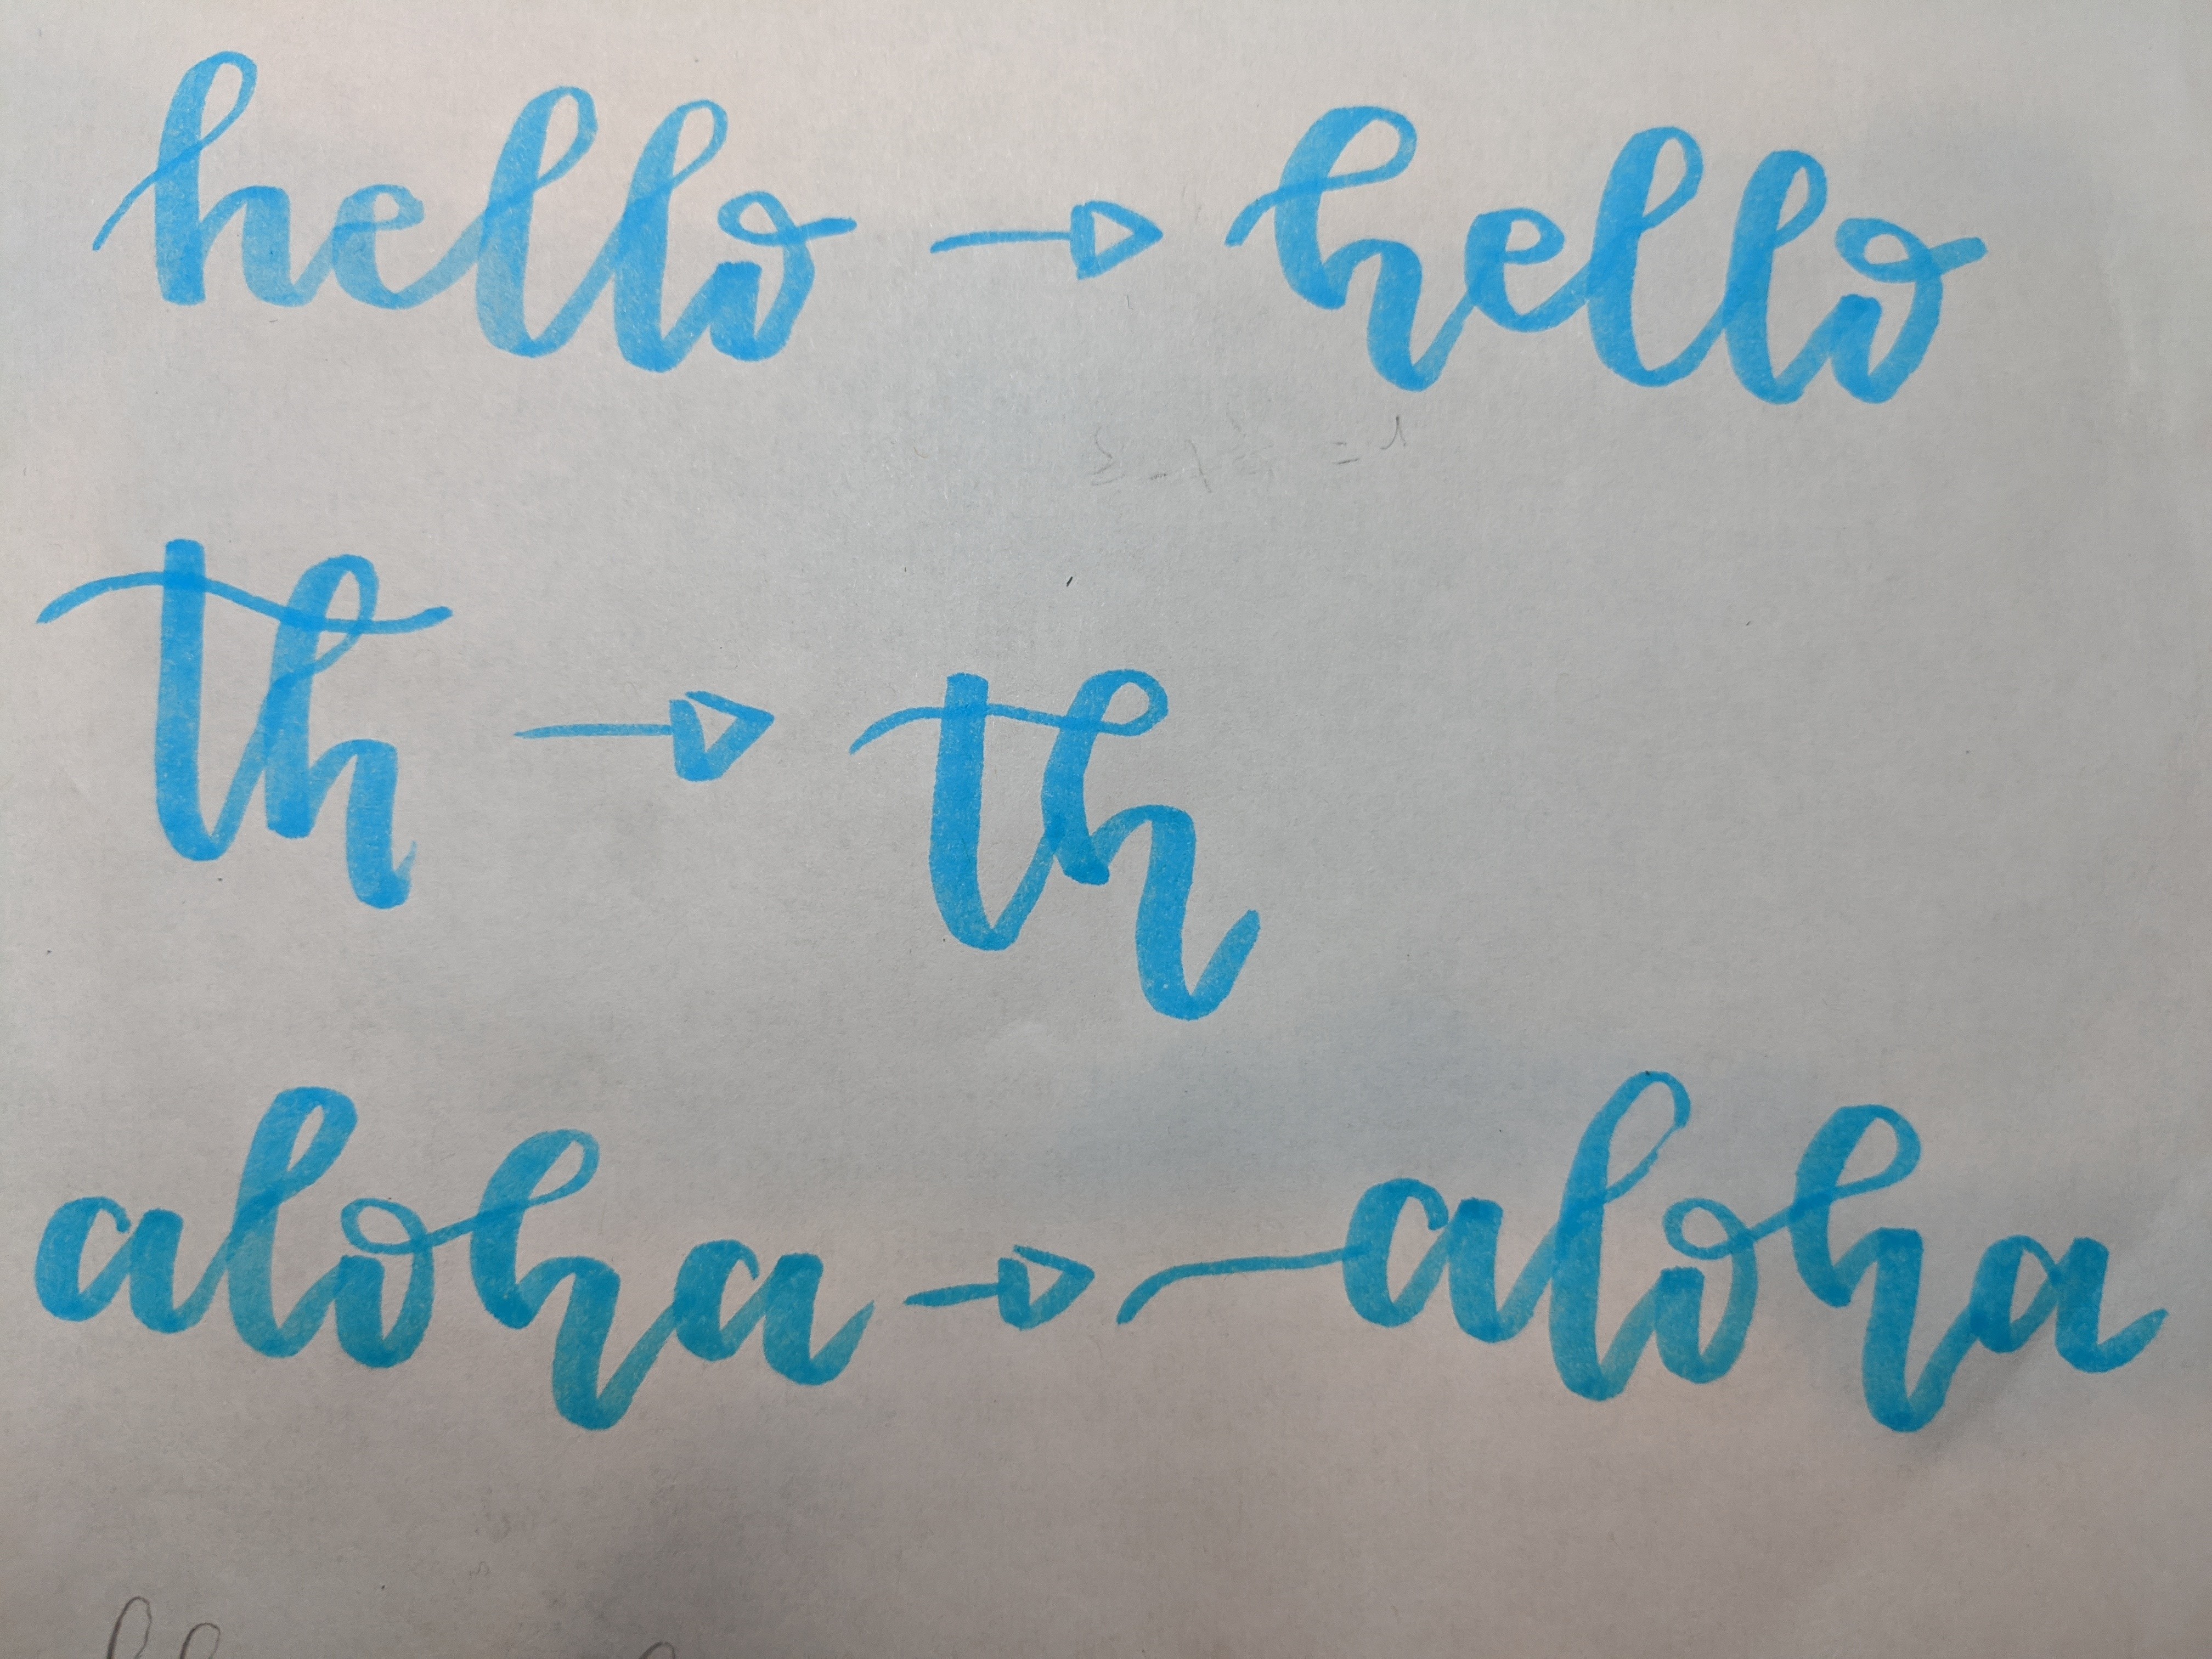 hello → hello
th → th
aloha → aloha